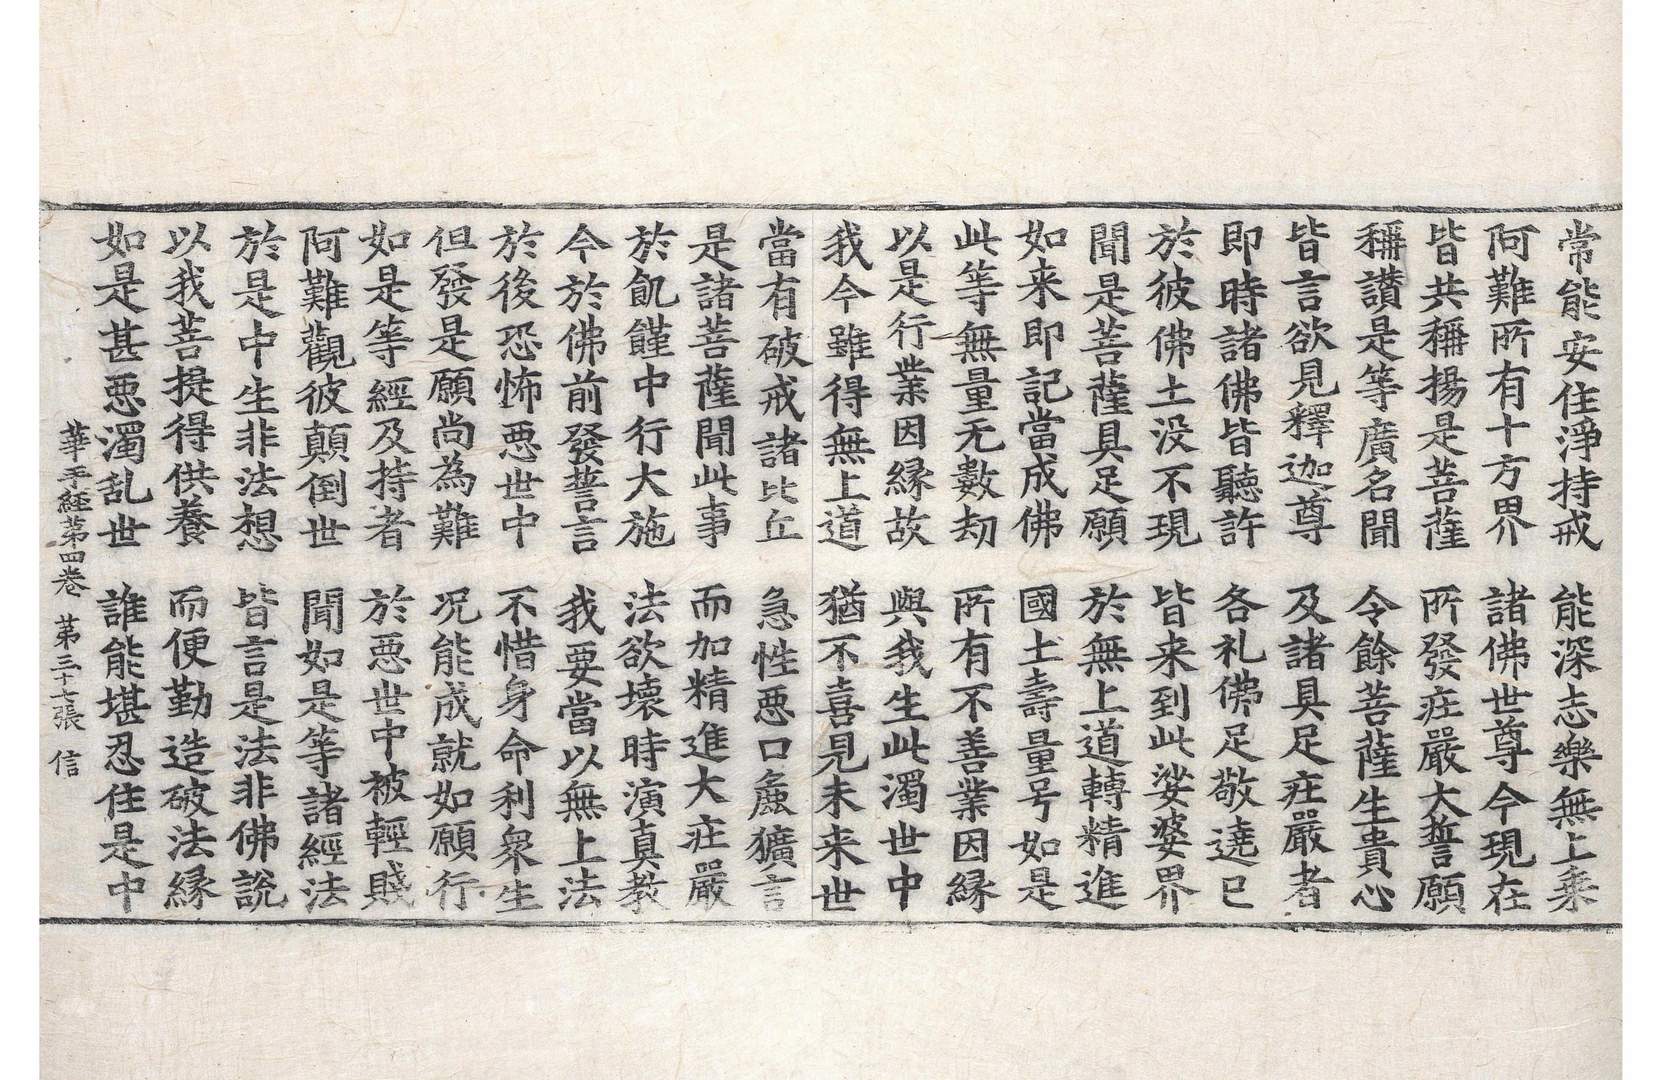 常能安住淨持戒　能深志樂無上乘
阿難所有十方界　諸佛世尊今現在
皆共稱揚是菩薩　所發㽵嚴大誓願
稱讚是等廣名聞　令餘菩薩生貴心
皆言欲見釋迦尊　及諸具足㽵嚴者
即時諸佛皆聽許　各礼佛足敬遶已
於彼佛土没不現　皆来到此娑婆界
聞是菩薩具足願　於無上道轉精進
如来即記當成佛　國土壽量号如是
此等無量无數劫　所有不善業因緣
以是行業因緣故　與我生此濁世中
我今雖得無上道　猶不喜見未来世
當有破戒諸比丘　急性恶口麁獷言
是諸菩薩聞此事　而加精進大㽵嚴
於飢饉中行大施　法欲壞時演真教
今於佛前發誓言　我要當以無上法
於後恐怖恶世中　不惜身命利衆生
但發是願尚為難　况能成就如願行
如是等經及持者　於恶世中被輕賤
阿難觀彼顛倒世　聞如是等諸經法
於是中生非法想　皆言是法非佛說
以我菩提得供養　而便勤造破法緣
如是甚恶濁乱世　誰能堪忍住是中
華手經第四卷　第三十七張　信